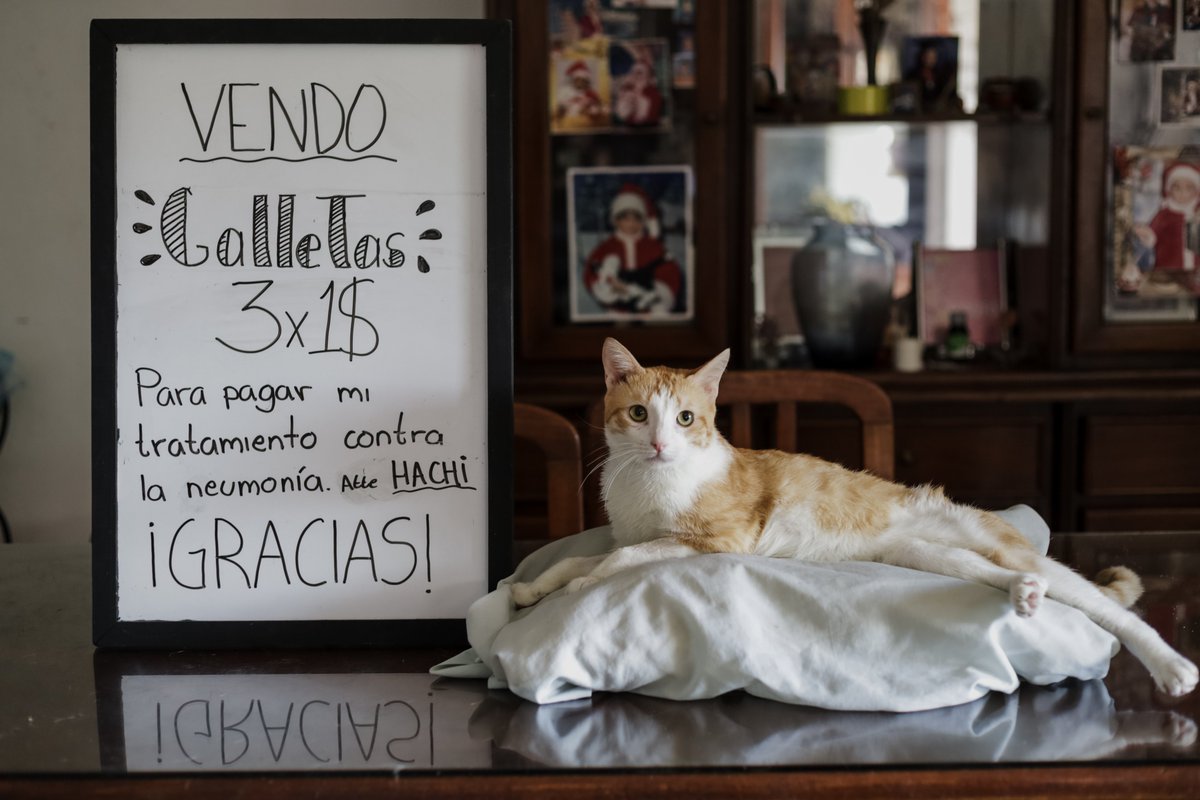 VENDO
GalleTas
3x1$
Para pagar mi
tratamiento contra
la neumonía. Atte HACHi
¡GRACIAS!